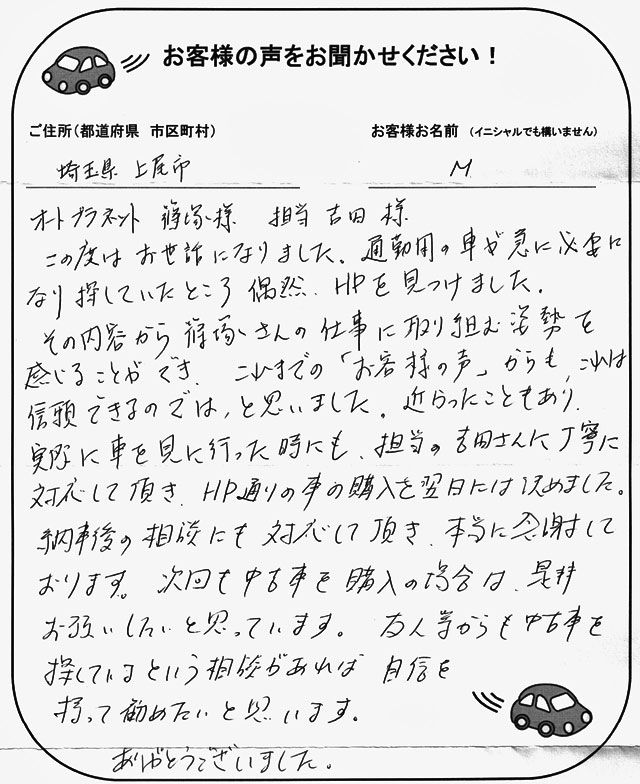 お客様の声をお聞かせください！
ご住所（都道府県　市区町村）
お客様お名前　（イニシャルでも構いません）
埼玉県 上尾市
M
オートプラネット 篠塚様 担当 吉田 様
この度は お世話になりました。通勤用の車が急に必要に
なり 探していたところ 偶然、HPを見つけました。
その内容から 篠塚さんの 仕事に取り組む姿勢を
感じることができ、これまでの「お客様の声」からも、これは
信頼できるのでは、と思いました。近らったこともあり、
実際に車を見に行った時にも、担当の吉田さんに丁寧に
対応して頂き、HP通りの車の購入を翌日には決めました。
納車後の相談にも 対応して頂き、本当に感謝して
おります。次回も中古車を購入の場合は、是非
お願いしたいと思っています。友人等からも中古車を
探しているという相談があれば 自信を
持って勧めたいと思います。
ありがとうございました。